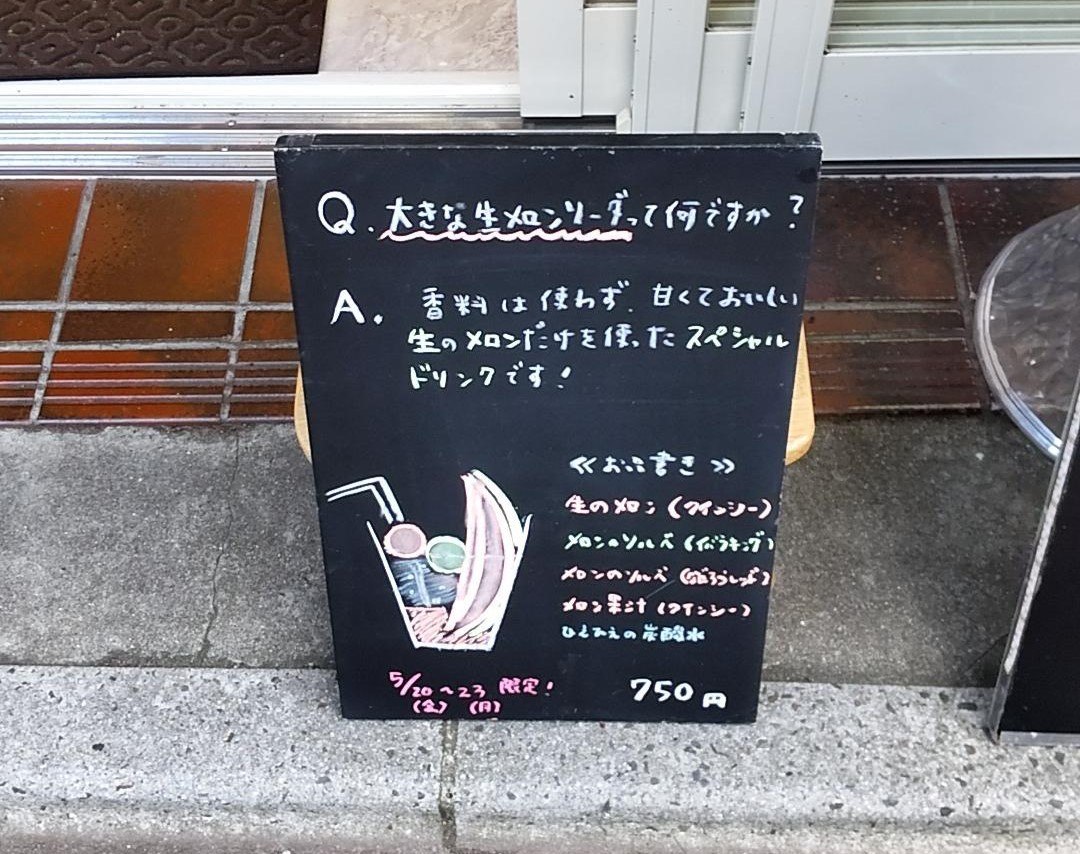 Q. 大きな生メロンソーダって何ですか？
A. 香料は使わず、甘くておいしい
生のメロンだけを使った スペシャル
ドリンクです！
≪お品書き≫
生のメロン（クインシー）
メロンのソルベ（イバラキング）
メロンのソルベ
メロン果汁（クインシー）
の炭酸水
5/20〜23 限定！
（金） （月）
750円